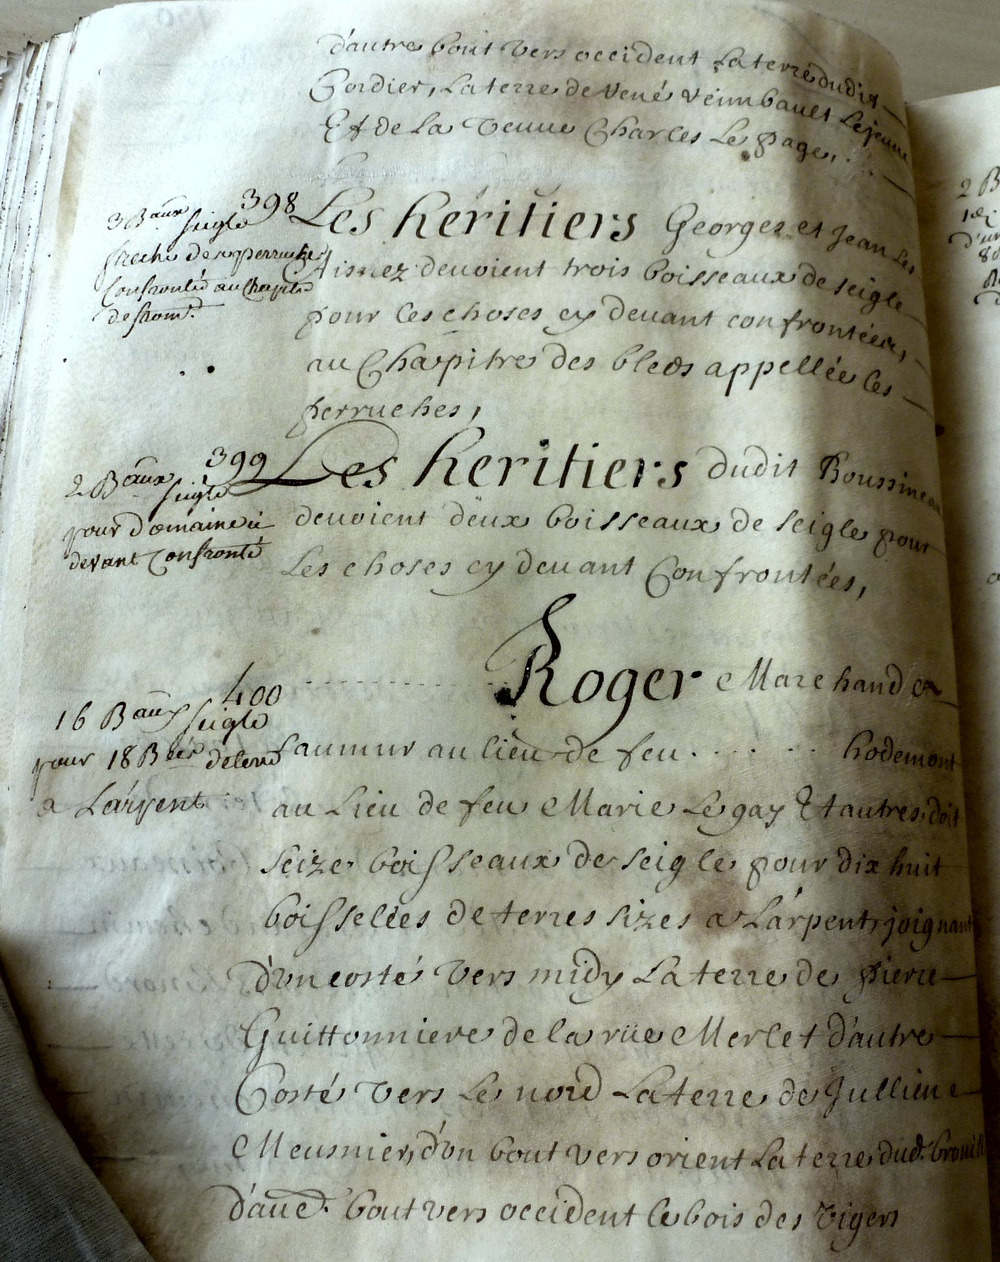 d'autre bout vers occident La terre dudit
Cordier, La terre de René Reimbault Lejeune
Et de La veuve Charles Le page,
3 Baux seigle
398
Les heritiers Georges et Jean Les
Aisnez devoient trois boisseaux de seigle
pour les choses cy devant confrontées,
au Chapitre des bleds appellée les
perruches,
Confronté au Chapitre
2 Baux seigle
pour domaine ci
devant Confronté
399
Les heritiers dudit Boussineau
devoient deux boisseaux de seigle pour
Les choses cy devant Confrontées,
16 Baux seigle
pour 18 Bées de terre
a Larpent
400
Roger Marchand a
saumur au lieu de feu . . . . . . hodemont
au Lieu de feu Marie Le gay Et autres doit
seize boisseaux de seigle pour dix huit
boisselées de terres sizes a Larpent, joignant
d'un costé vers midy La terre de pierre
Guittonniere de la rüe Merlet d'autre
Costé vers Le nord La terre de Jullien
Meusnier, d'un bout vers orient La terre dud.
d'aue. bout vers occident le bois des vigers